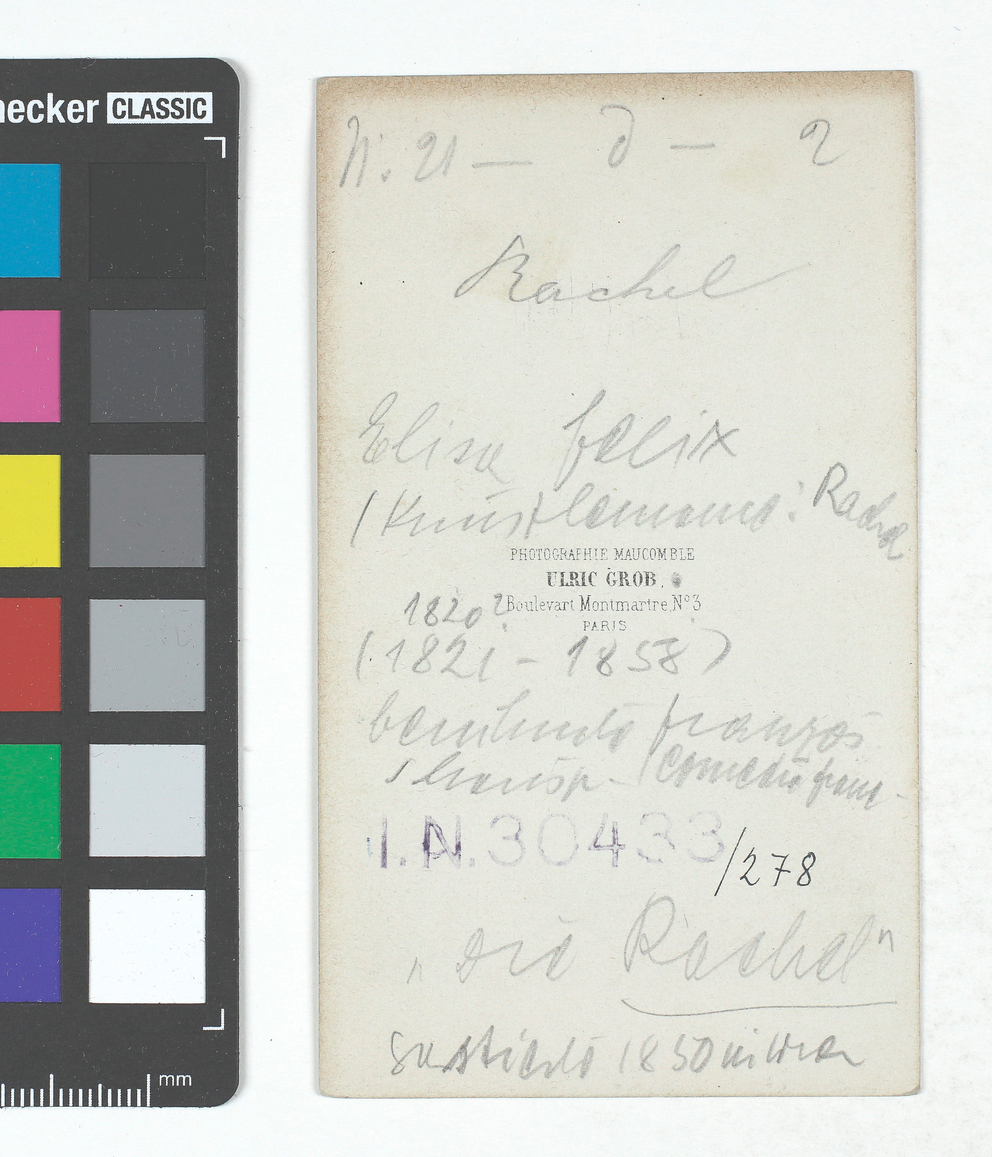 ecker CLASSIC
N. 21 — d — 2
Rachel
Elisa Felix
(Künstlername: Rachel
PHOTOGRAPHIE MAUCOMBLE
ULRIC GROB.
1820? Boulevart Montmartre, Nº 3
PARIS
(1821 - 1858)
berühmte französ
Schausp. Comedie franc.
I.N. 30433
/278
"Die Rachel"
gastierte 1850 in Wien
mm